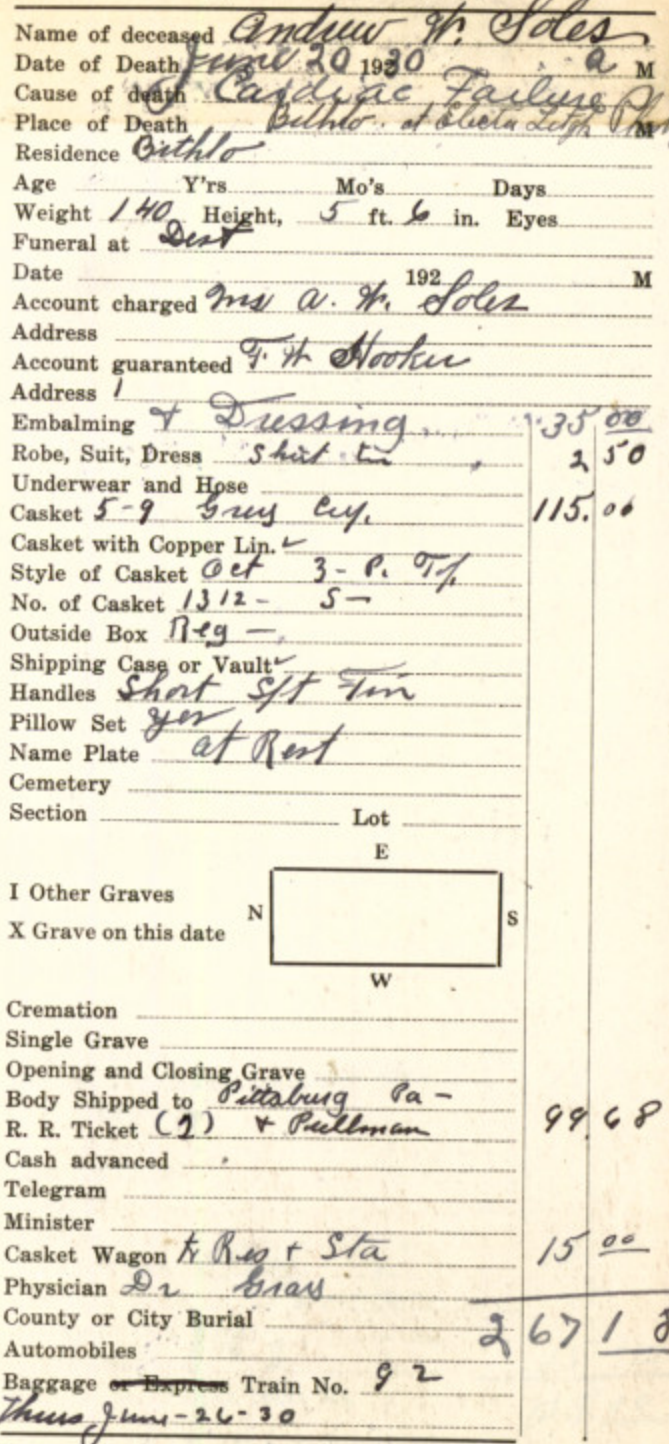 Name of deceased Andrew W. Soles
Date of Death June 20 1930 a M
Cause of death Cardiac Failure
Place of Death Bithlo - at Electa M
Residence Bithlo
Age Y'rs Mo's Days
Weight 140 Height, 5 ft. 6 in. Eyes
Funeral at Dest
Date 192 M
Account charged Mrs A. W. Soles
Address
Account guaranteed F. W Hooker
Address
Embalming & Dressing 35 00
Robe, Suit, Dress Shirt tie 2 50
Underwear and Hose
Casket 5-9 Grey 115.00
Casket with Copper Lin.
Style of Casket Oct 3- P.
No. of Casket 1312- S-
Outside Box Reg -
Shipping Case or Vault
Handles Short Tin
Pillow Set yes
Name Plate at Rest
Cemetery
Section Lot
E
I Other Graves
N S
X Grave on this date
W
Cremation
Single Grave
Opening and Closing Grave
Body Shipped to Pittsburg Pa-
R. R. Ticket (2) & Pullman 99.68
Cash advanced
Telegram
Minister
Casket Wagon to Res & Sta 15 00
Physician Dr
County or City Burial 267 18
Automobiles
Baggage or Express Train No. 92
Thurs June-26-30